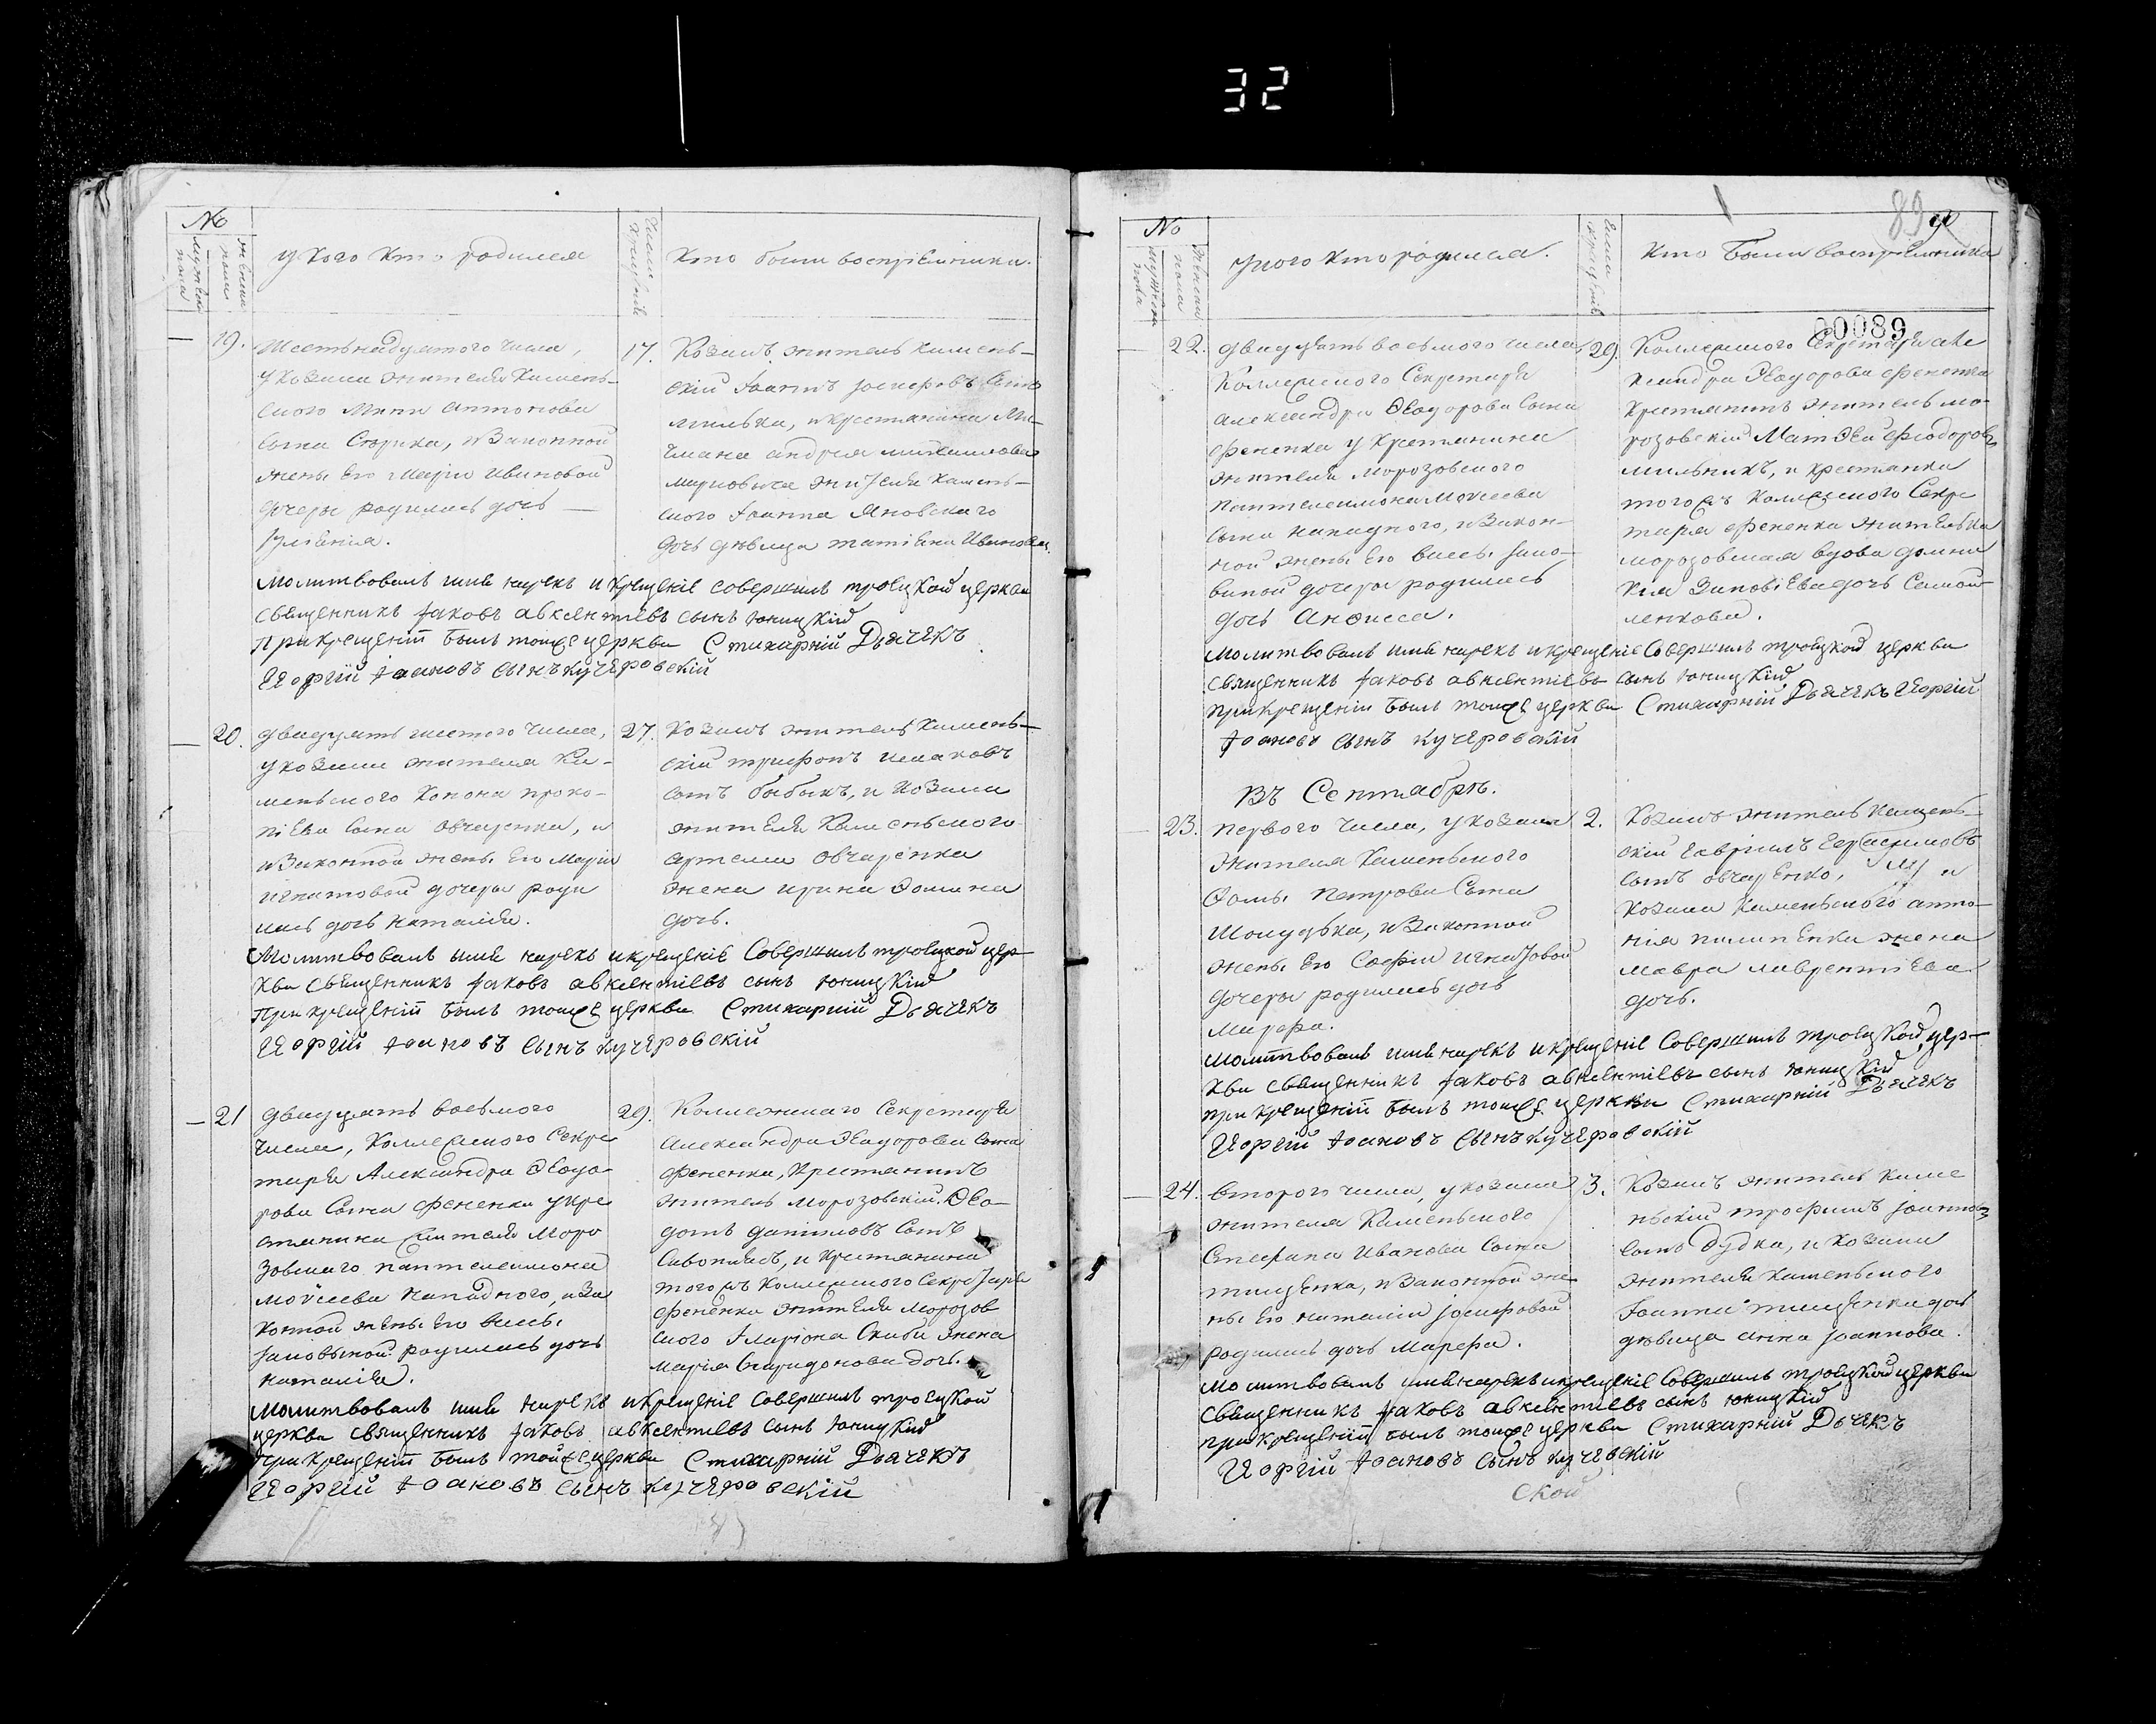 32
№
женска пола
мужеска пола
у кого кто родился
Число крещенiя
Кто были воспрiемники.
19.
Шестьнадцятого числа,
у козака жителя Камень-
ского Мини Антонова
сына Старика, и законной
жены его Марiи Ивановой
дочеры родилась дочь —
Iулiянiя.
17.
Козакъ житель Камень-
скiй Iоаннъ Iосифовъ сынъ
крестянина Ми-
андрея михаилова
жителя камень-
ского Iоанна Яновскаго
дочь дѣвица татiяна Иванова.
Молитвовалъ имя нарекъ и крещенiе совершилъ троецкой церкви
священникъ Iаковъ авксентiевъ сынъ Юницкiй
При крещенiи былъ тойже церкви Стихарнiй Дьячекъ
Георгiй Iоановъ сынъ кучеровскiй
20.
двадцять шестого числа,
у козака жителя Ка-
меньского Конона проко-
пiева сына Овчаренка, и
и законной жены его Марiи
игнатовой дочеры роди
лась дочь наталiя.
27.
Козакъ житель Камень-
скiй трифонъ исаковъ
сынъ бабыкъ, и козака
жителя Каменьского
артема овчаренка
жена ирина Фомина
дочь.
Молитвовалъ имя нарекъ и крещенiе Совершилъ троецкой цер-
кви священникъ Iаковъ авксентiевъ сынъ Юницкiй
При крещенiи былъ тойже церкви Стихарнiй Дьячекъ
Георгiй Iоановъ сынъ кучеровскiй
21
двадцять восьмого
числа, Коллежского Секре
таря Александра Ѳеодо-
рова сына Фененка у кре
стянина жителя Моро
зовского пантелеимона
мойсеева нападного, и за
конной жены его васы
Iаковьвной родилась дочь
наталiя.
29.
Коллежскаго Секретаря
Александра Ѳеодорова сына
Фененка, Крестянинъ
житель морозовскiй Ѳео-
дотъ данiиловъ сынъ
и крестянина
тогожъ Коллежского Секретаря
фененка жителя Морозов
ского Iларiона Скиби жена
марiя Спиридонова дочь.
Молитвовалъ имя нарекъ и крещенiе Совершилъ троецкой
церкви священникъ Iаковъ авксентiевъ сынъ Юницкiй
При крещенiи былъ тойже церкви Стихарнiй Дьячекъ
Георгiй Iоановъ сынъ кучеровскiй
89
00089
№
женска пола
мужеска пола
у кого кто родился.
Число крещенiя
Кто были воспрiемника
22.
двадцять восьмого числа,
Коллежского Секретаря
александра Ѳеодорова сына
Фененка у Крестянина
жителя Морозовского
Пантелеимона Мойсеева
сына нападного, и закон-
ной жены его васы Iако-
виной дочеры родилась
дочь Анѳиса.
29.
Коллежского Секретаря але
ксандра Ѳеодорова фененка
крестянинъ житель мо-
розовскiй Матѳей Феодоровъ
мильникъ, и крестянка
тогожъ Коллежского Секре
таря фененка жителька
морозовская вдова домни
кiя Зиновiева дочь Самой-
ленкова.
Молитвовалъ имя нарекъ и крещенiе Совершилъ троецкой церкви
священникъ Iаковъ авксентiевъ сынъ Юницкiй
При крещенiи былъ тойже церкви Стихарнiй Дьячекъ Георгiй
Iоановъ сынъ кучеровскiй
Въ Септябрѣ.
23.
первого числа, у козака
жителя Каменьского
Фомы Петрова сына
и законной
жены его Софiи игнатовой
дочеры родилась дочь
Марфа.
2.
Козакъ житель Камень-
скiй Гаврiилъ Герасимовъ
сынъ овчаренко, и
козака Каменьского анто-
нiя пилипенка жена
Мавра лаврентiева
дочь.
Молитвовалъ имя нарекъ и крещенiе Совершилъ троецкой цер-
кви священникъ Iаковъ авксентiевъ сынъ Юницкiй
При крещенiи былъ тойже церкви Стихарнiй Дьячекъ
Георгiй Iоановъ сынъ кучеровскiй
24.
второго числа, у козака
жителя Каменьского
Стефана Иванова сына
тищенка, и законной же
ны его наталiи Iосифовой
родилась дочь Марфа.
3.
Козакъ житель Каме
ньскiй трофимъ Iоанновъ
сынъ дудка, и козака
жителя Каменьского
Iоанна тищенка дочь
дѣвица анна Iоаннова.
Молитвовалъ имя нарекъ и крещенiе Совершилъ троецкой церкви
священникъ Iаковъ авксентiевъ сынъ Юницкiй
при крещенiи былъ тойже церкви Стихарнiй Дьчекъ
Георгiй Iоановъ сынъ кучевскiй
ской